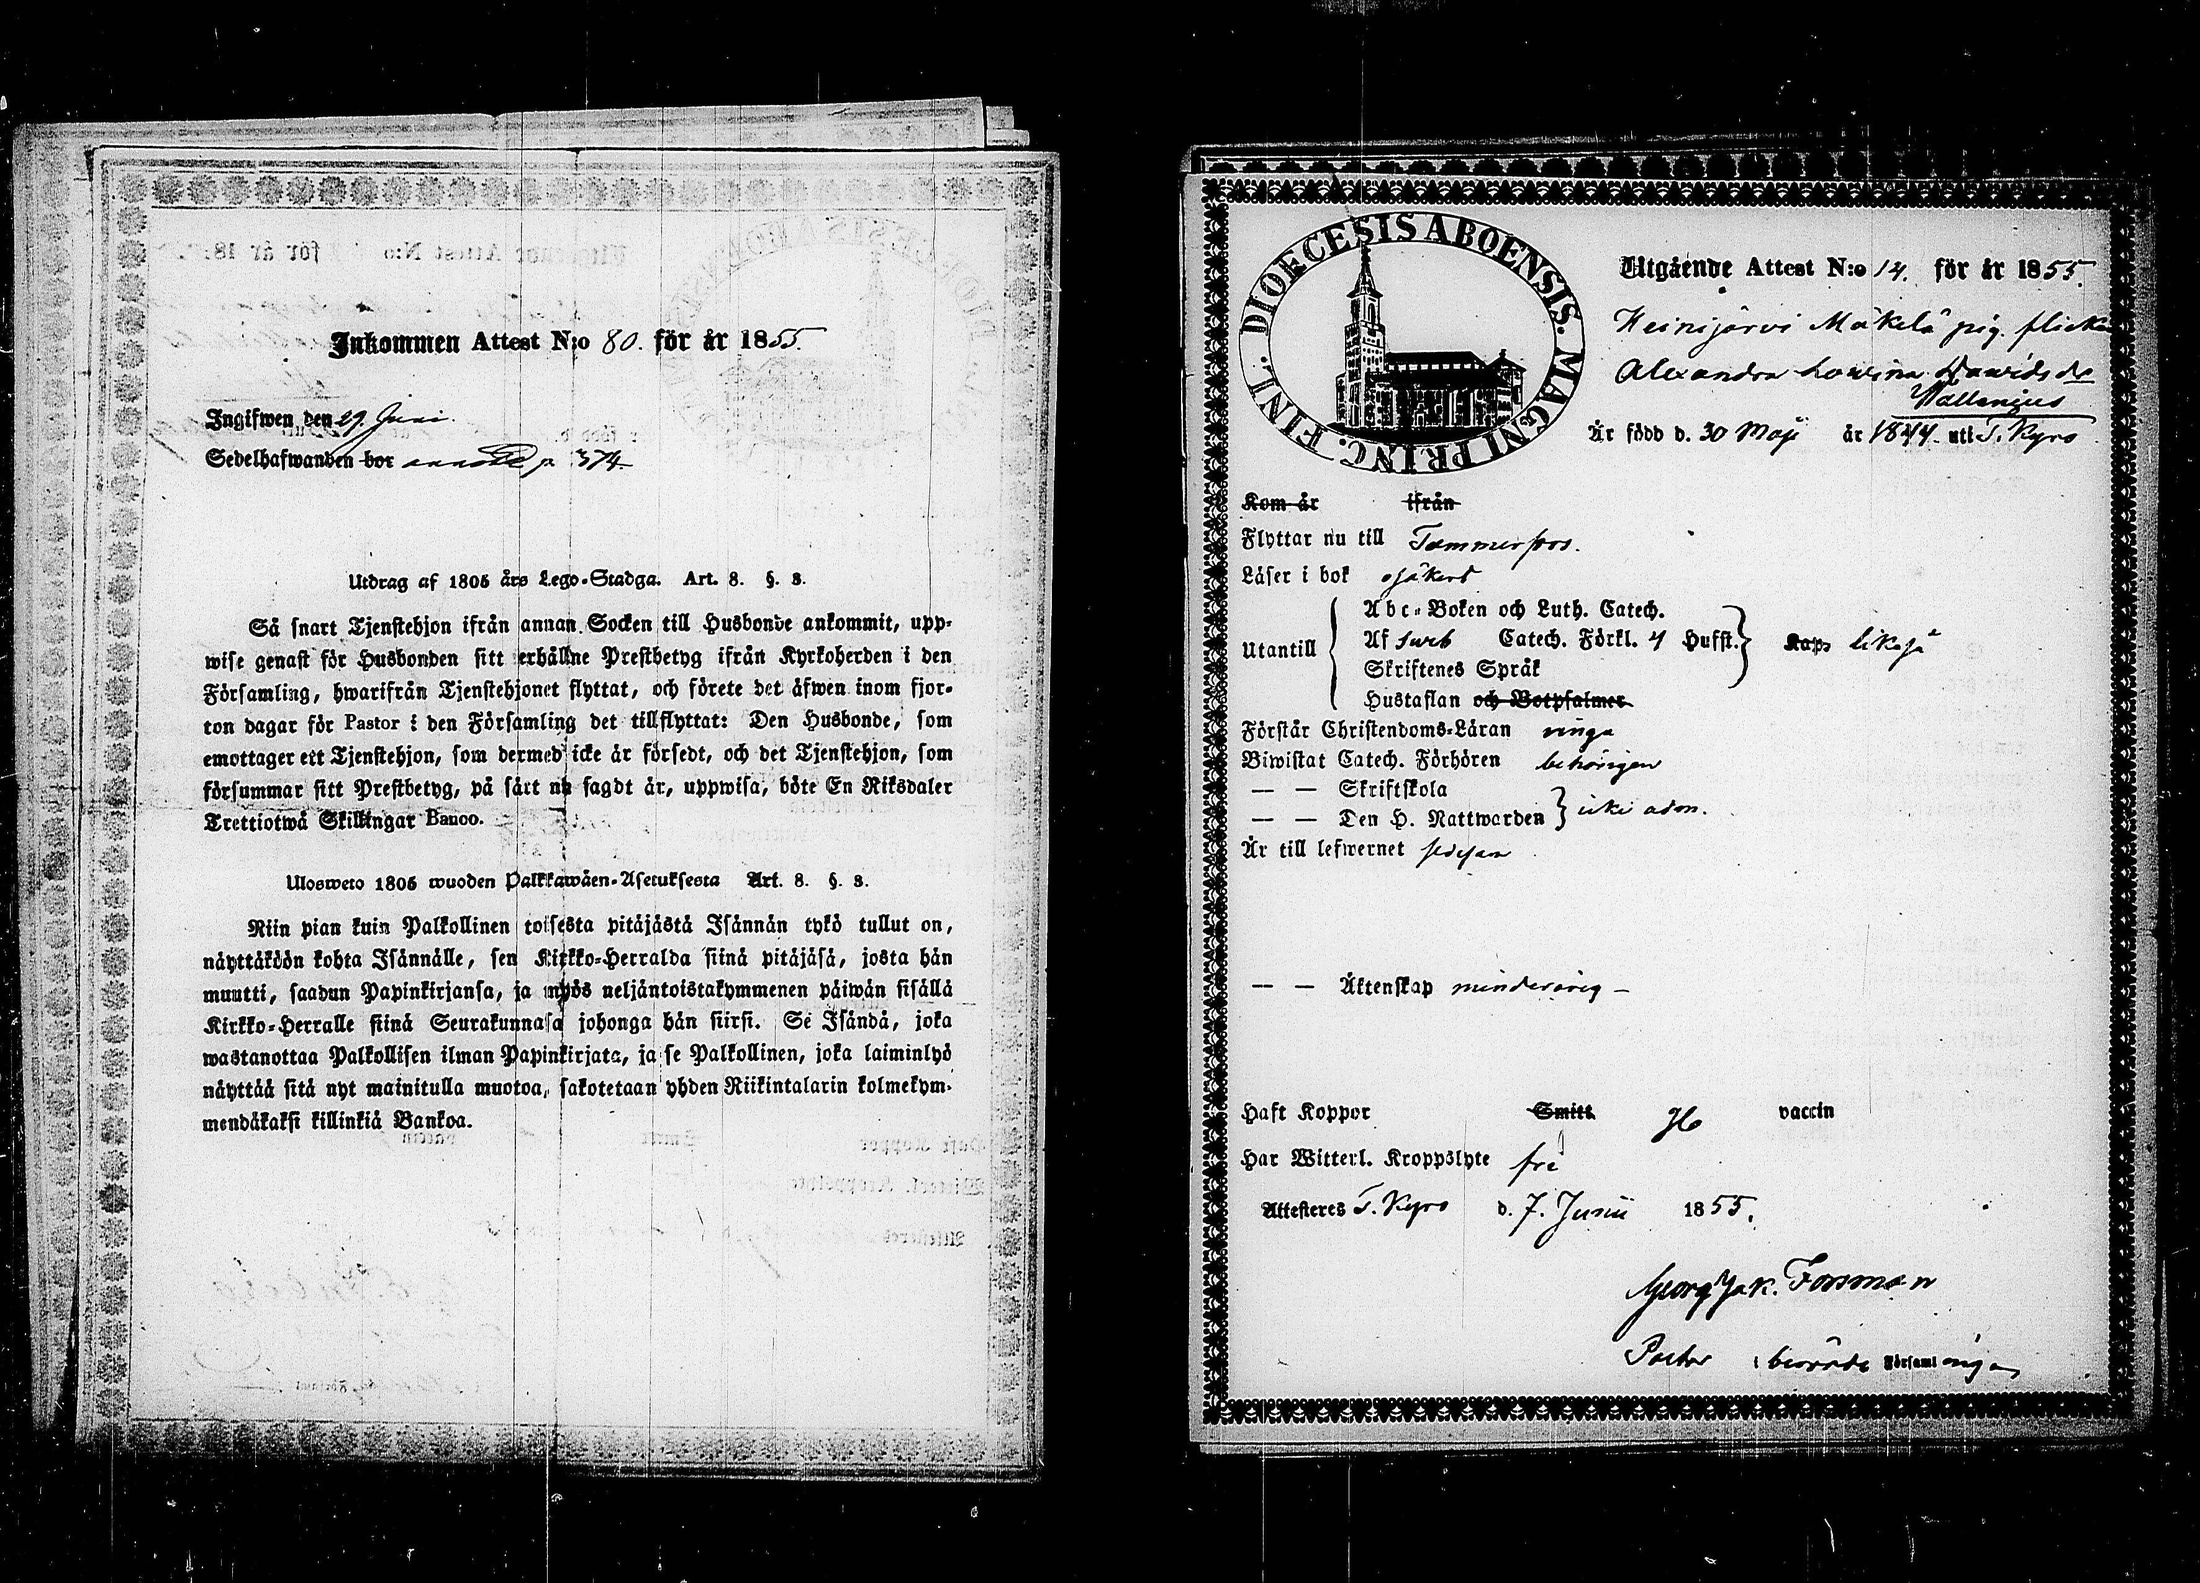 Inkommen Attest N:o 80. för år 1855.
Ingifwen den 29. Juni.
Sedelhafwanden bor p 374
Utdrag af 1805 års Lego-Stadga. Art. 8. §. 3.
Så snart Tjenstehjon ifrån annan Socken till Husbonde ankommit, upp-
wise genast för Husbonden sitt erhållne Prestbetyg ifrån Kyrkoherden i den
Församling, hwarifrån Tjenstehjonet flyttat, och förete det äfwen inom fjor-
ton dagar för Pastor i den Församling det tillflyttat: Den Husbonde, som
emottager ett Tjenstehjon, som dermed icke är försedt, och det Tjenstehjon, som
försummar sitt Prestbetyg, på sätt nu sagdt är, uppwisa, böte En Riksdaler
Trettiotwå Skillingar Banco.
Ulosweto 1805 wuoden Palkkawäen-Asetuksesta Art. 8. §. 3.
Niin pian kuin Palkollinen toisesta pitäjästä Isännän tykö tullut on,
näyttäköön kohta Isännälle, sen Kirkko-Herralda siinä pitäjäsä, josta hän
muutti, saadun Papinkirjansa, ja myös neljäntoistakymmenen päiwän sisällä
Kirkko-Herralle siinä Seurakunnasa johonga hän siirsi. Se Isändä, joka
wastanottaa Palkollisen ilman Papinkirjata, ja se Palkollinen, joka laiminlyö
näyttää sitä nyt mainitulla muotoa, sakotetaan yhden Riikintalarin kolmekym-
mendäkaksi killinkiä Bankoa.
DIOECESIS ABOENSIS. MAGNI PRINC. FINL.
Utgående Attest N:o 14. för år 1855.
Heinijärvi Mäkelä pig. flicka
Alexandra Lovisa Davids dr
Wallenius
Är född d. 30 Maji år 1844 uti T. Kyro
Kom år ifrån
Flyttar nu till Tammerfors.
Läser i bok osäkert
Abc-Boken och Luth. Catech.
Utantill Af Catech. Förkl. 4 Hufst. Kap: likaså
Skriftenes Språk
Hustaflan och Botpsalmer
Förstår Christendoms-Läran ringa
Biwistat Catech. Förhören behörigen
— — Skriftskola
— — Den H. Nattwarden icke adm.
Är till lefwernet sedesam
— — Äktenskap minderårig —
Haft Koppor Smitt vaccin
Har Witterl. Kroppslyte fri
Attesteres T. Kyro d. 7. Junii 1855.
Georg Jak. Forsman
Pastor i berörde Församlingen